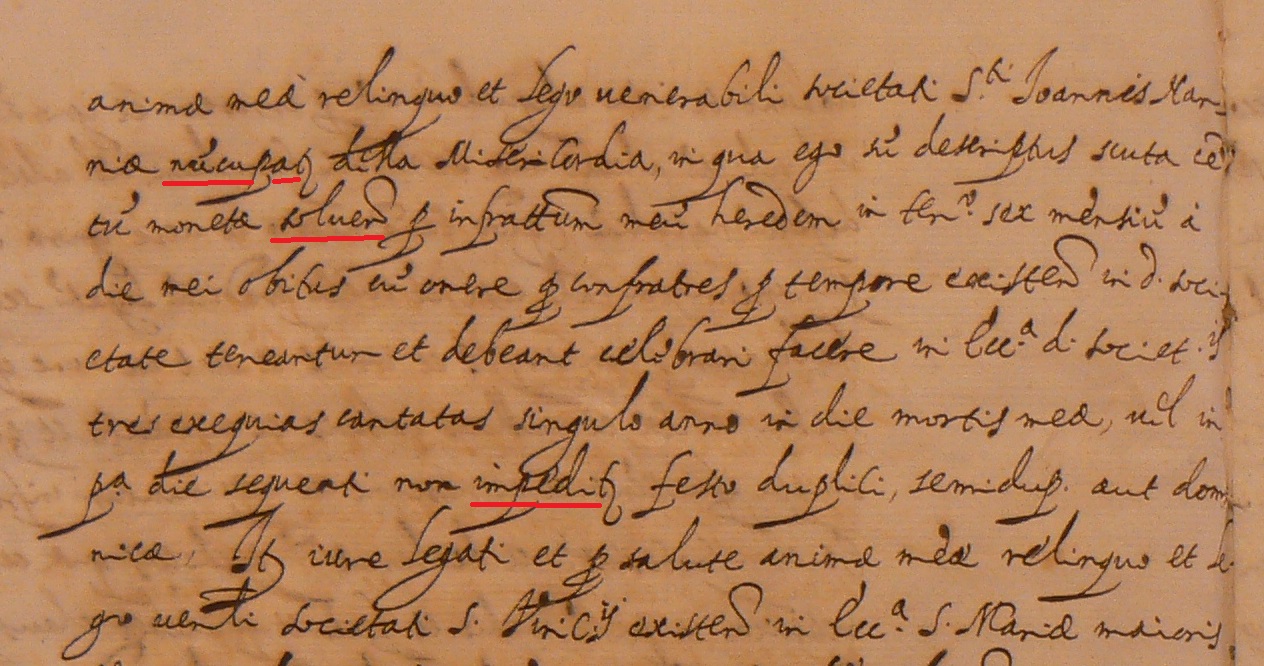 animæ meæ relinquo et lego venerabili societati S.ti Joannis Nar-
niæ nũcupat dicta Misericordia, in qua ego sũ descriptus scuta cẽ
tũ monetæ solven p infrattum meũ heredem in ter.o sex mẽnsiũ à
die mei obitus cũ onere q confratres p tempore existen in d. soci-
etate teneantur et debeant celebrari facere in Ecc.a d. societ.is
tres exequias cantatas singulo anno in die mortis meæ, vel in
p.a die sequenti non impedit festo duplici, semidup. aut domi
nicæ, It iure legati et p salute animæ meæ relinquo et le
go venli societati S. existen in Ecc.a S. Mariæ maioris